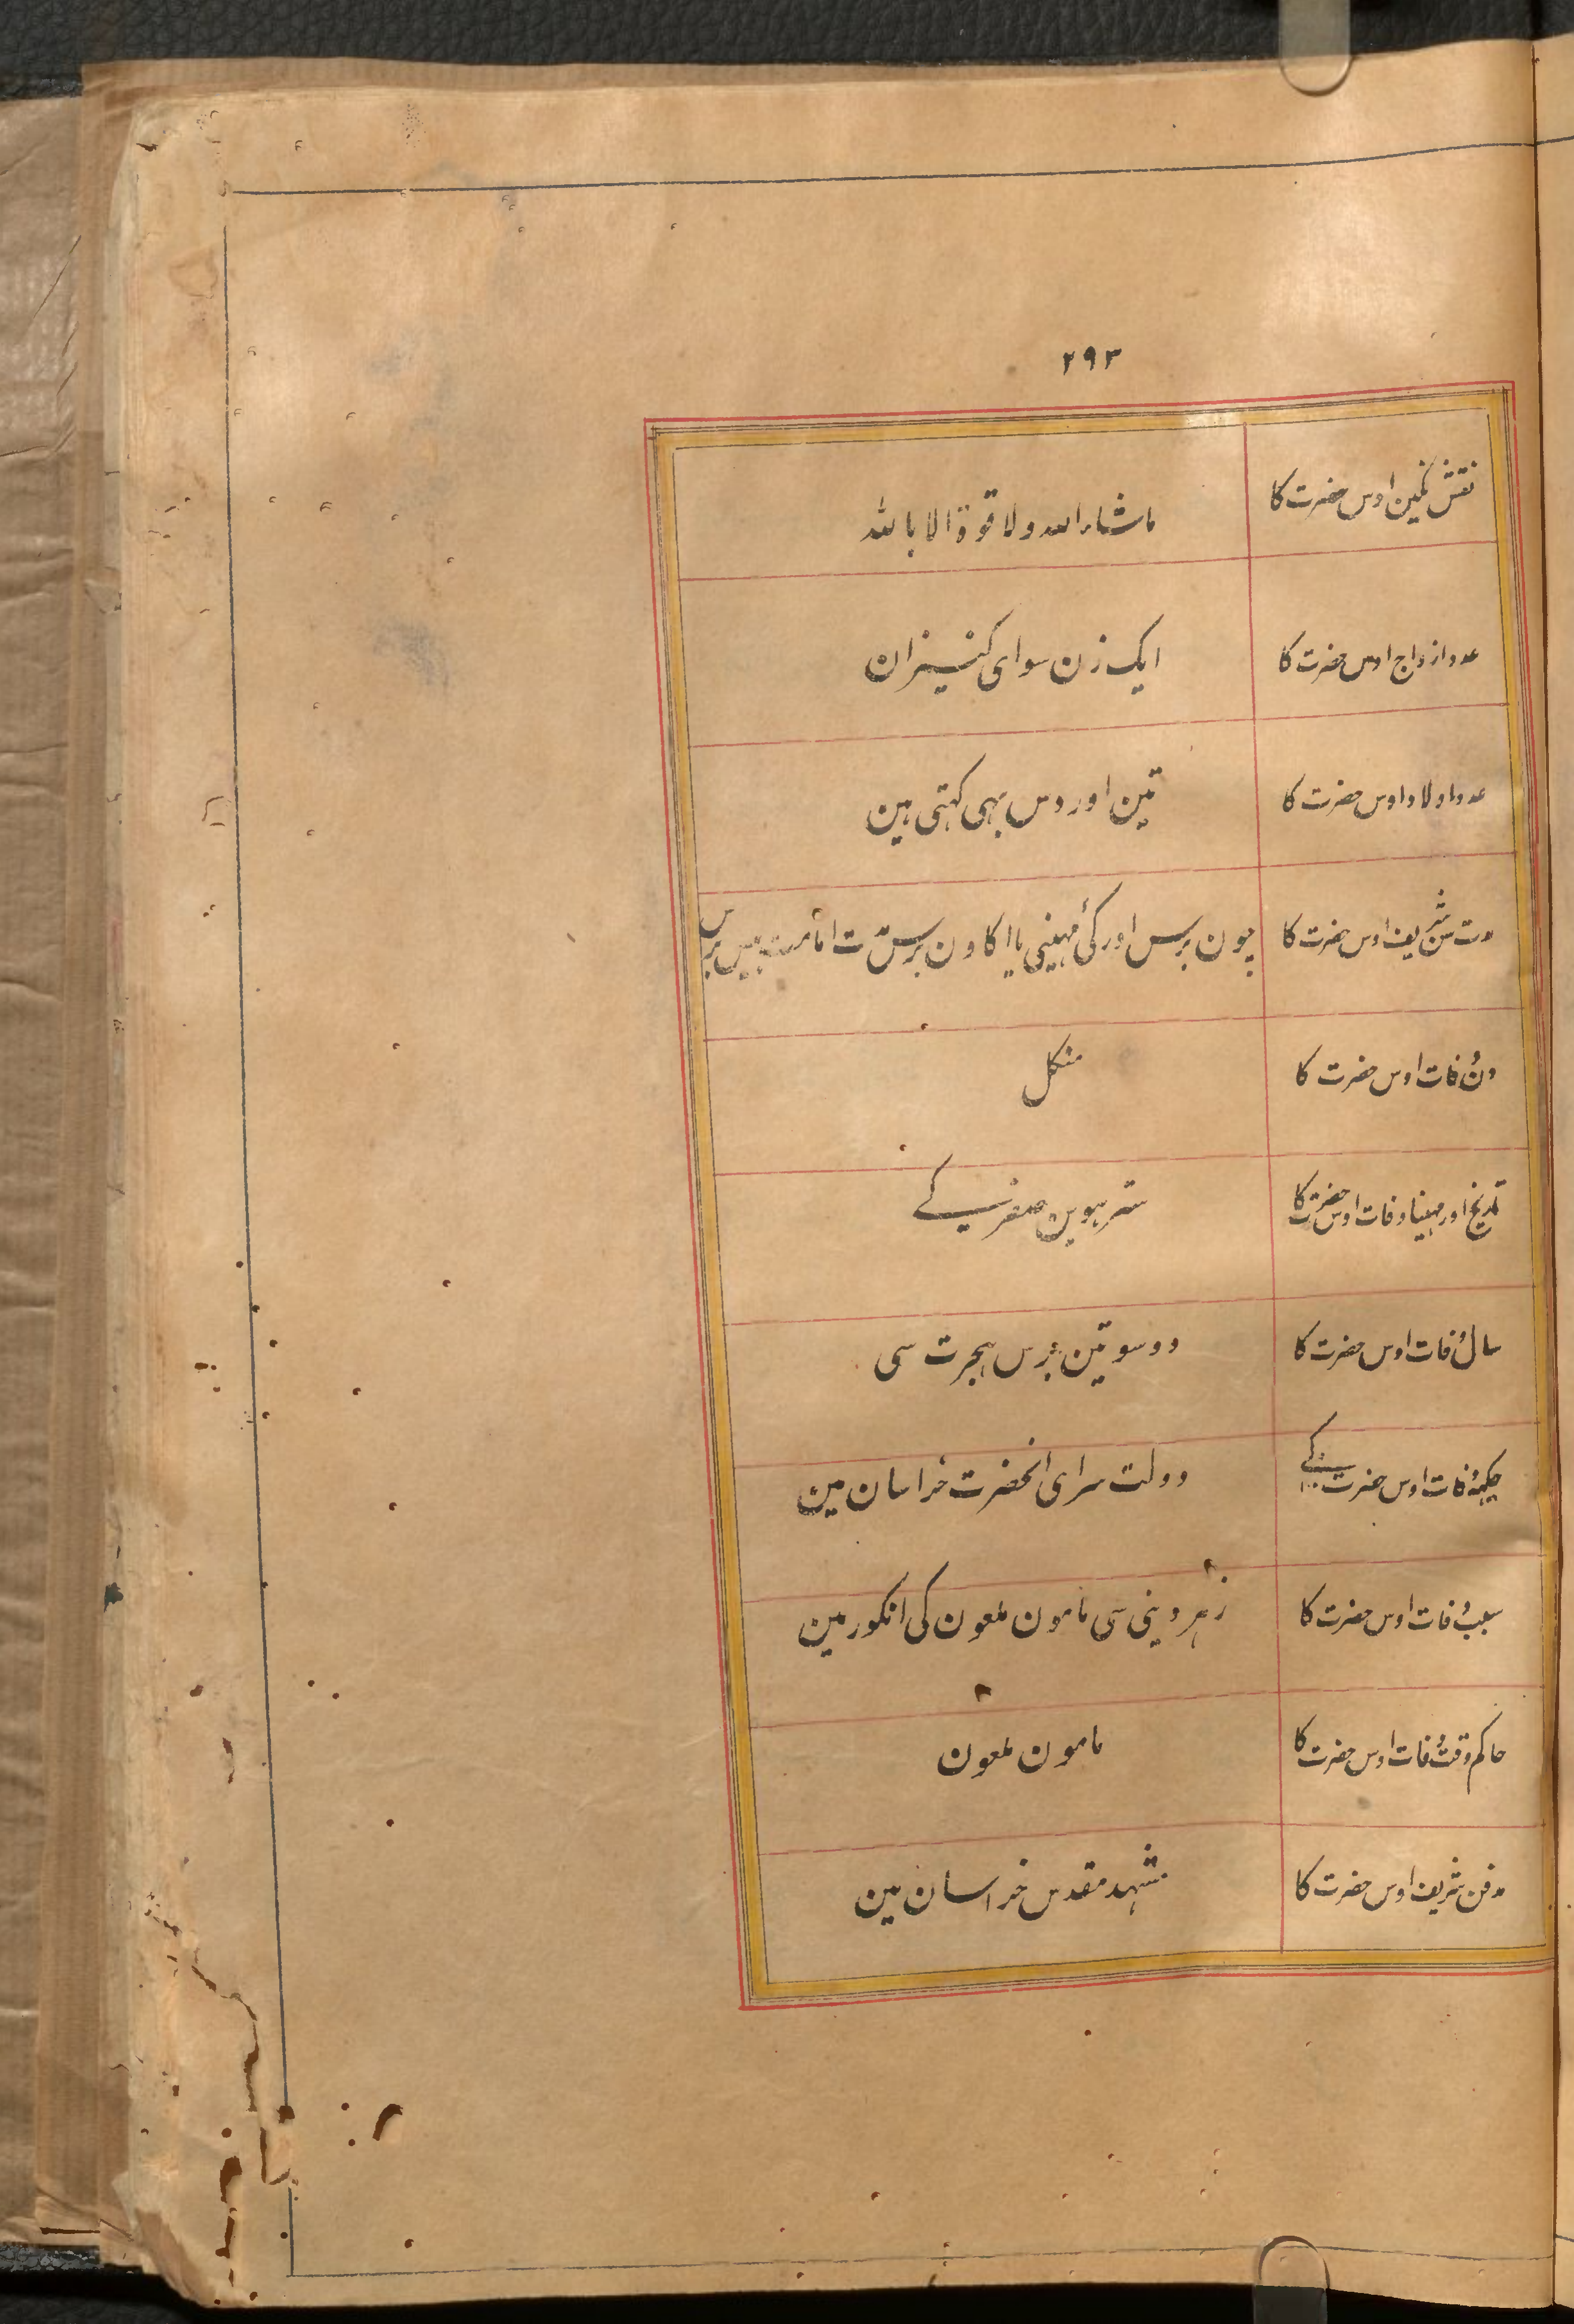 ۲۹۳
نقش نگین اوس حضرت کا ماشاء الله ولا قوة الا بالله
عدد ازواج اوس حضرت کا ایک زن سوای کنیزان
عدد اولاد اوس حضرت کا تین اور دس بہی کہتی ہین
مدت سن شریف اوس حضرت کا چون برس اور کئی مہینی یا اکاون برس مدت امامت بیس برس
دن وفات اوس حضرت کا منکل
تاریخ اور مہینا وفات اوس حضرت کا سترہوین صفر کے
سال وفات اوس حضرت کا دو سو تین برس ہجرت سی
جکہہ وفات اوس حضرت کے دولت سرای انحضرت خراسان مین
سبب وفات اوس حضرت کا زہر دینی سی مامون ملعون کی انکور مین
حاکم وقت وفات اوس حضرت کا مامون ملعون
مدفن شریف اوس حضرت کا مشہد مقدس خراسان مین